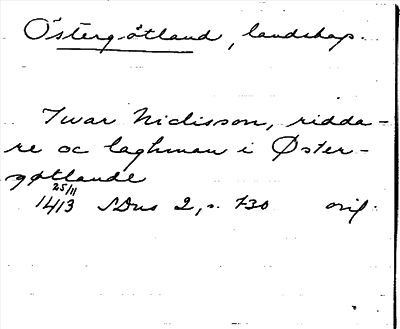 Östergötland, landskap.
Iwar Niclisson, ridda-
re oc laghman i Øster-
gøtlande
25/11
1413 SDns 2, s. 730 orig.